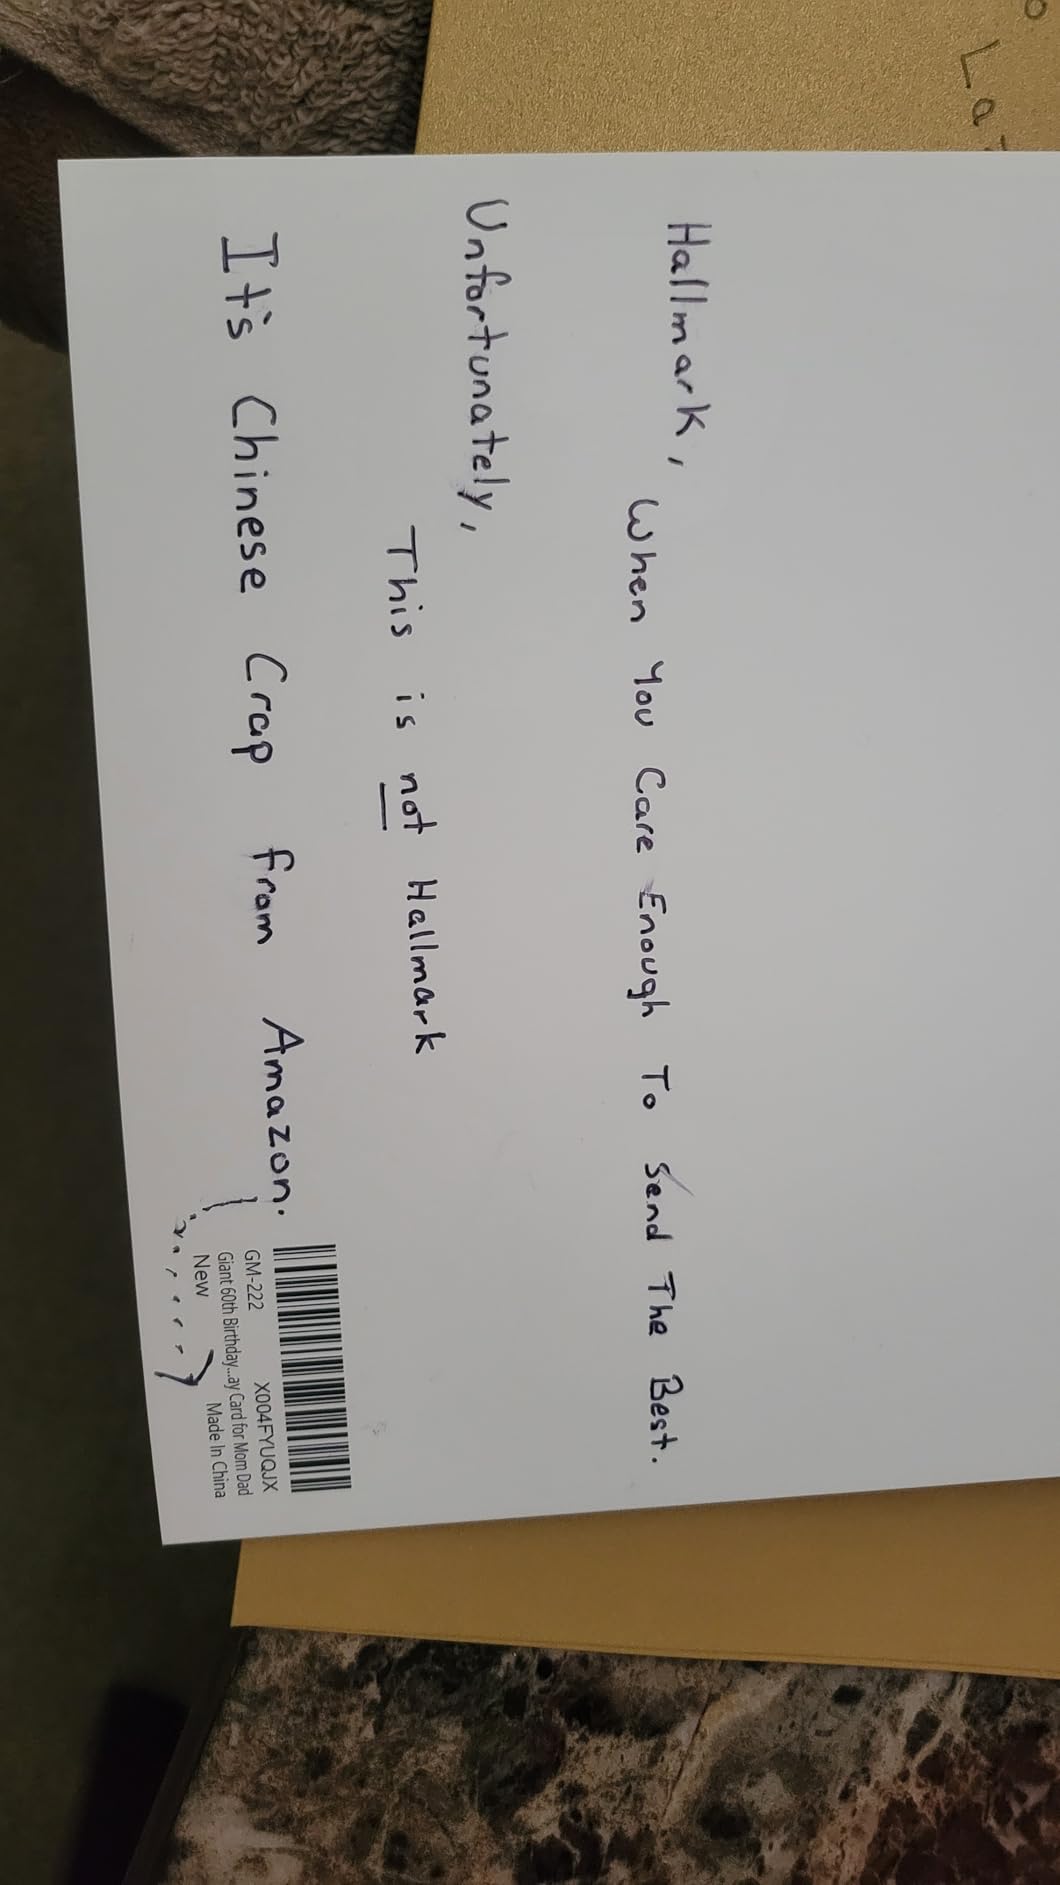 Hallmark, When You Care Enough To Send The Best.
Unfortunately,
This is not Hallmark
It's Chinese Crap from Amazon.
GM-222 X004FYUQJX
Giant 60th Birthday...ay Card for Mom Dad
New Made In China